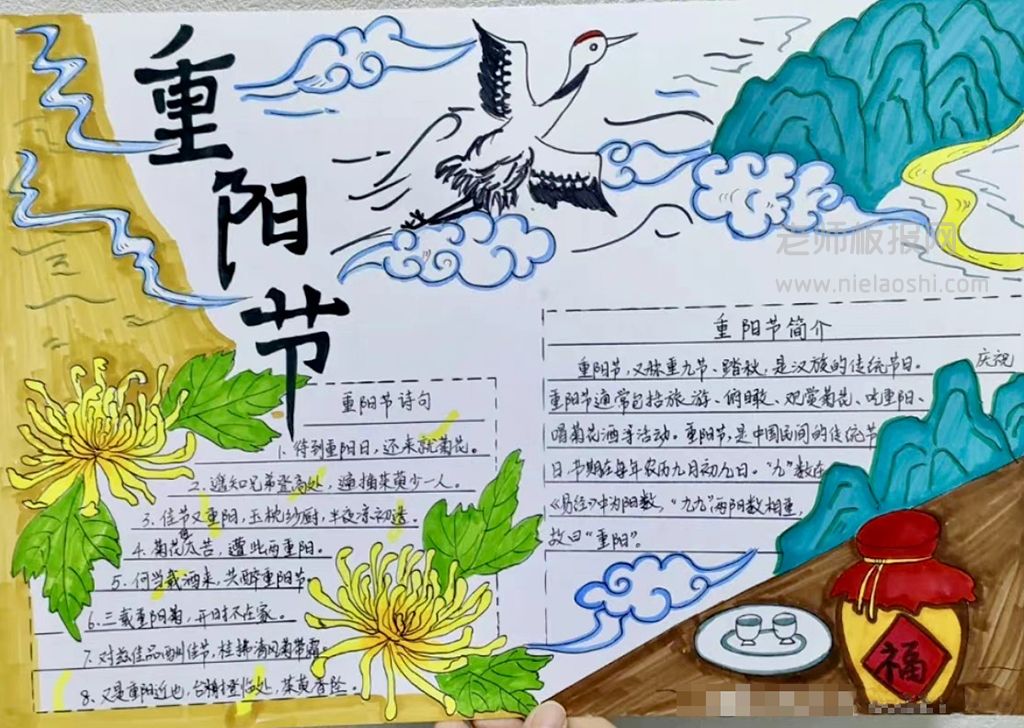 重阳节
老师板报网
www.nielaoshi.com
重阳节诗句
1. 待到重阳日，还来就菊花。
2. 遥知兄弟登高处，遍插茱萸少一人。
3. 佳节又重阳，玉枕纱厨，半夜凉初透。
4. 菊花太苦，遭此两重阳。
5. 何当载酒来，共醉重阳节。
6. 三载重阳菊，开时不在家。
7. 对兹佳品酬佳节，桂拂清风菊带霜。
8. 又是重阳近也，登临处，茱萸香
重阳节简介
重阳节，又称重九节、踏秋，是汉族的传统节日。 庆祝
重阳节通常包括旅游、俯瞰、观赏菊花、吃重阳、
喝菊花酒等活动。重阳节，是中国民间的传统节
日，节期在每年农历九月初九日。“九”数在
《易经》中为阳数，“九九”两阳数相重，
故曰“重阳”。
福